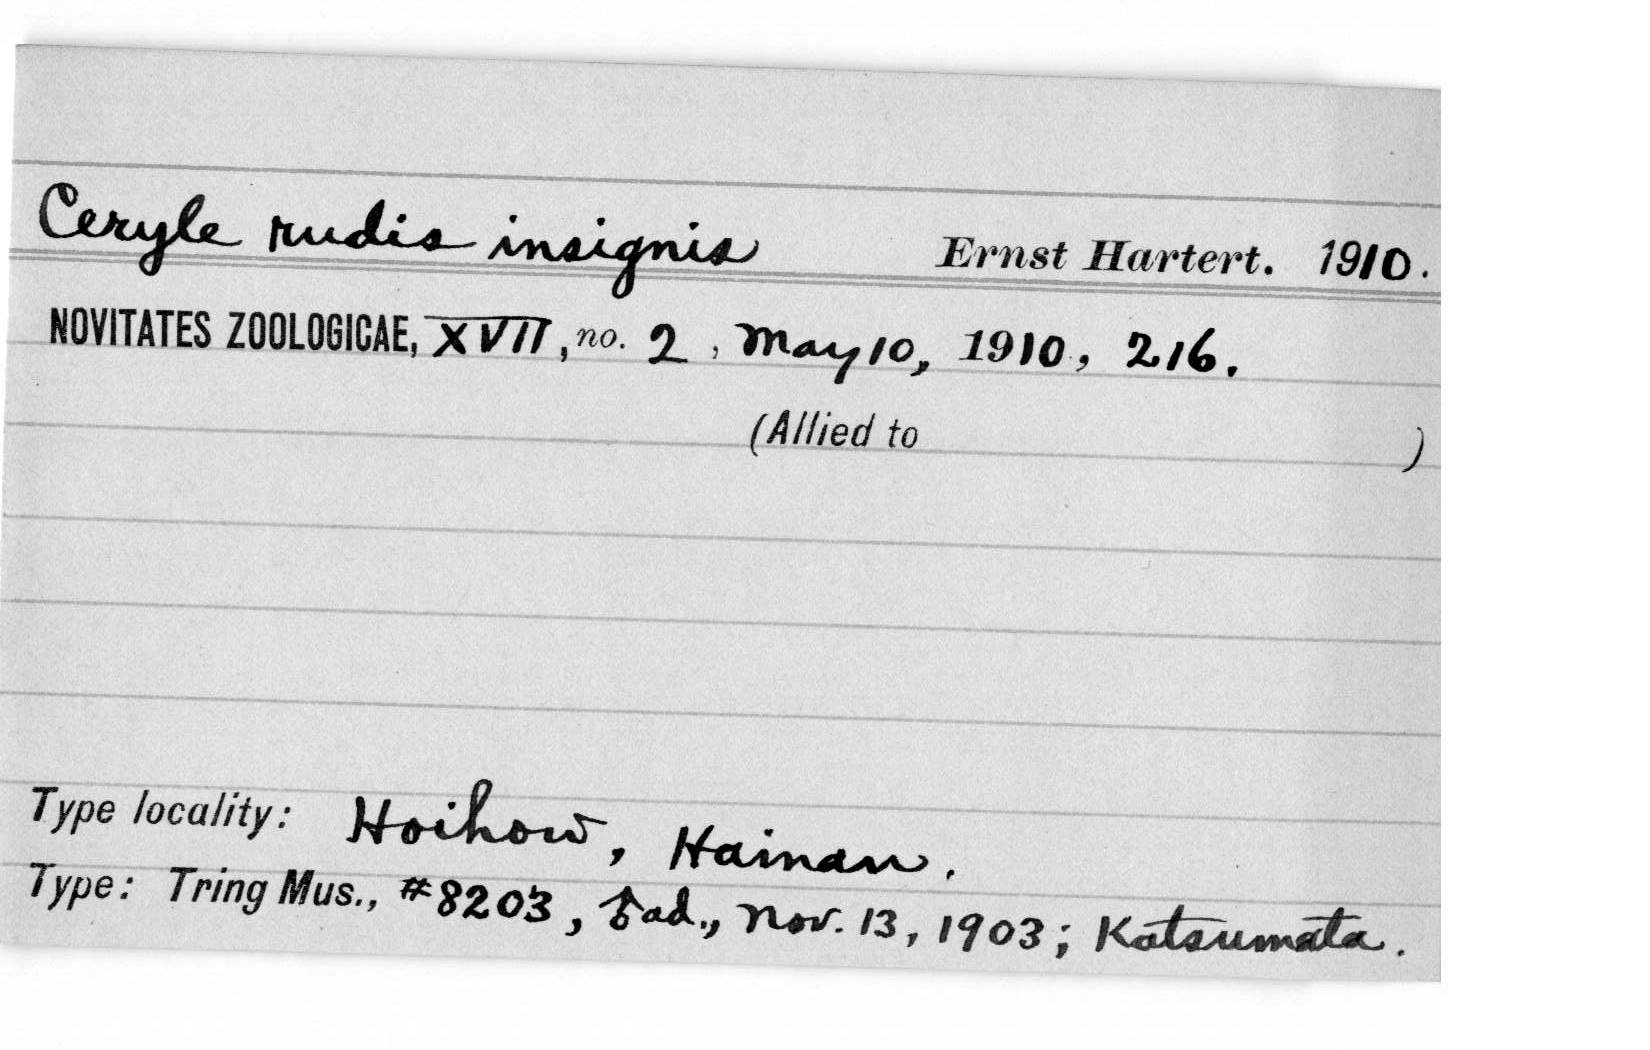 Ceryle rudis insignis Ernst Hartert. 1910.
NOVITATES ZOOLOGICAE, XVII, no. 2, May 10, 1910, 216.
(Allied to )
Type locality: Hoihow, Hainan.
Type: Tring Mus., #8203, ♂ ad., Nov. 13, 1903; Katsumata.